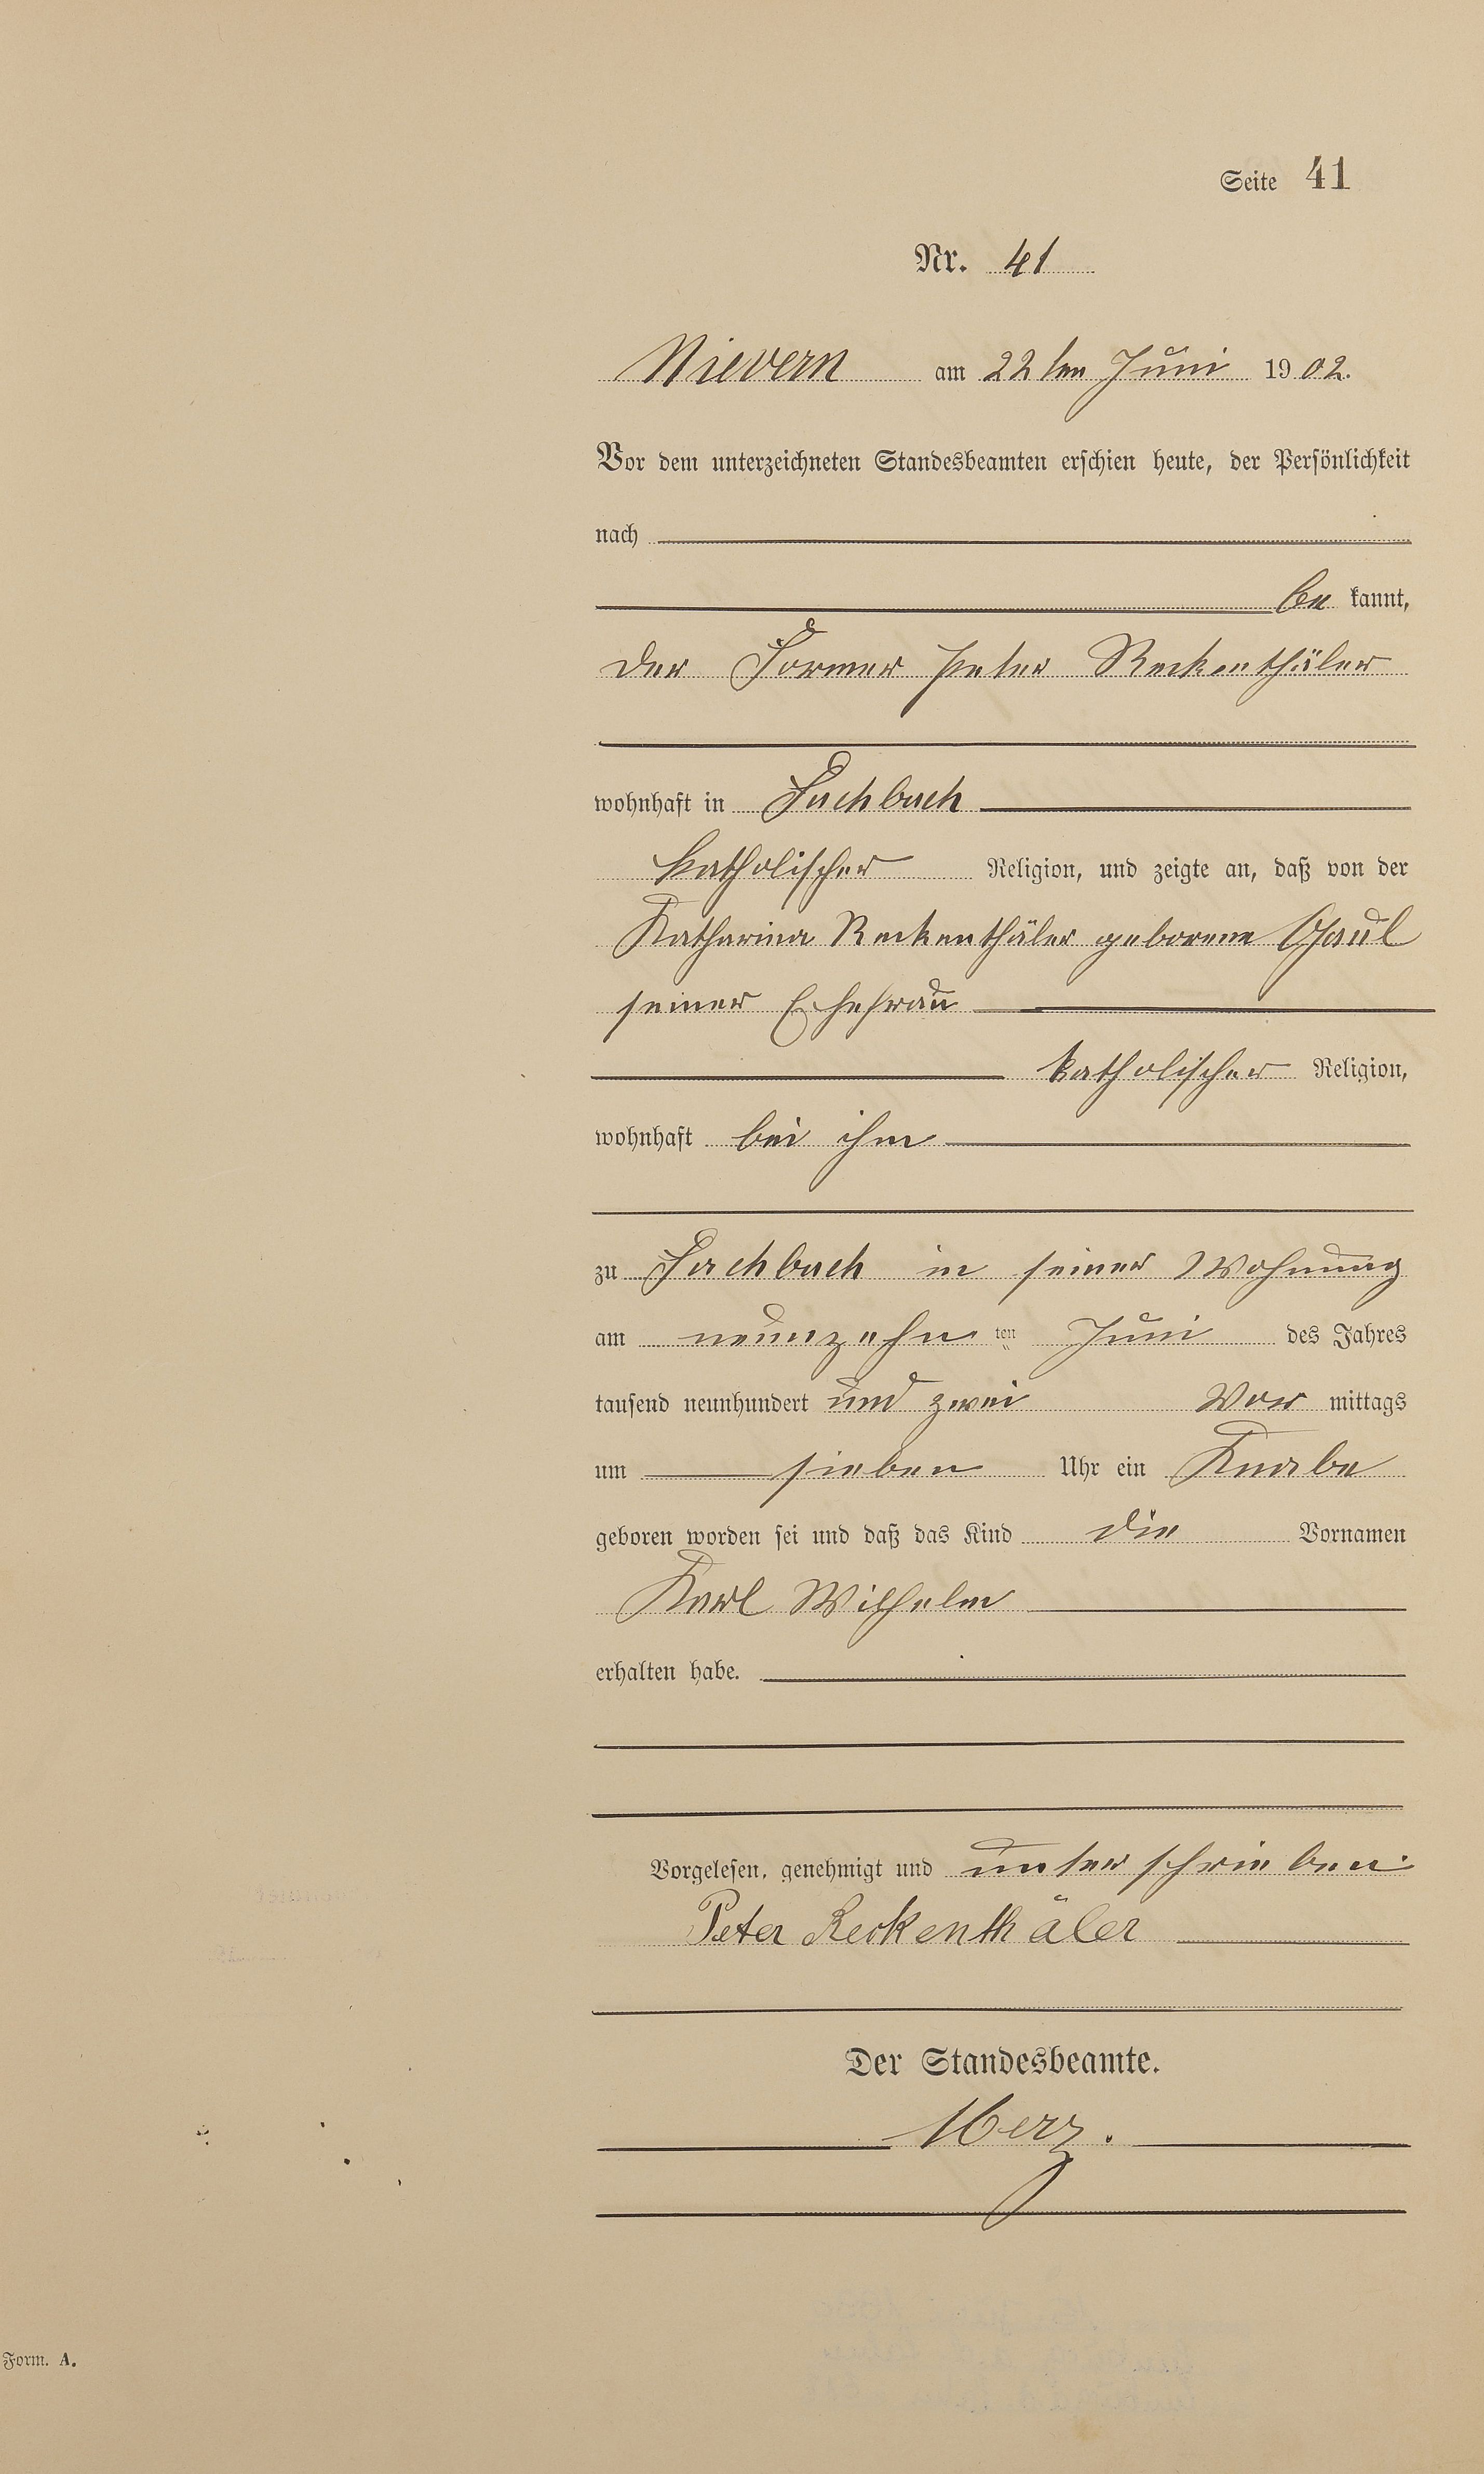 Seite 41
Nr. 41
Nievern am 22ten Juni 1902.
Vor dem unterzeichneten Standesbeamten erschien heute, der Persönlichkeit
nach
be kannt,
der Former Peter Reckenthäler
wohnhaft in Fachbach
katholischer Religion, und zeigte an, daß von der
Katharina Reckenthäler geborene Gaul
seiner Ehefrau
katholischer Religion,
wohnhaft bei ihm
zu Fachbach in seiner Wohnung
am neunzehn ten Juni des Jahres
tausend neunhundert und zwei Vor mittags
um sieben Uhr ein Knabe
geboren worden sei und daß das Kind die Vornamen
Karl Wilhelm
erhalten habe.
Vorgelesen, genehmigt und unterschrieben.
Peter Reckenthäler
Der Standesbeamte.
Merz.
Form. A.